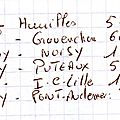 5 Houilles 5
- Gravenchon 6
- NOISY 1
- PUTEAUX 5
- I.C. Lille 1
- PONT-Audemer 1